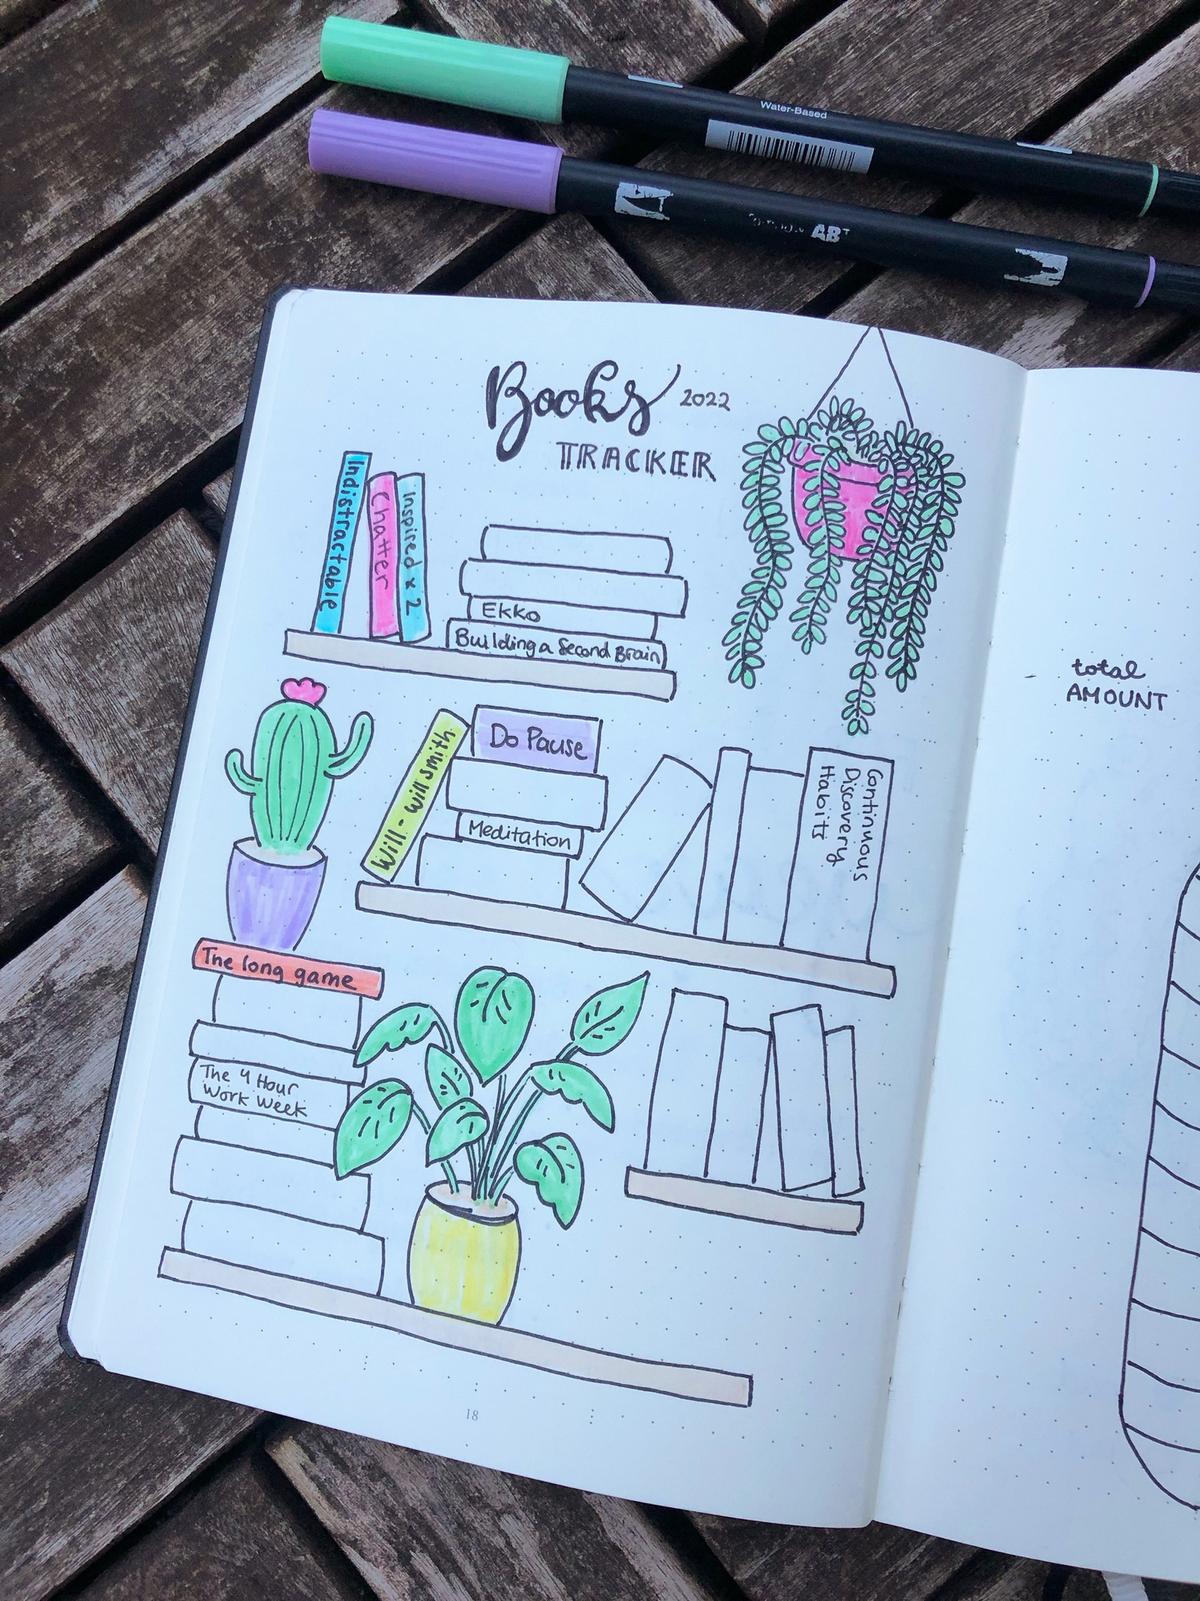 Water-Based
ABT
Books 2022
TRACKER
Indistractable
Chatter
Inspired x 2
Ekko
Building a Second Brain
Will - Will Smith
Do Pause
Meditation
Continuous
Discovery
Habits
The long game
The 4 Hour
Work Week
18
total
AMOUNT